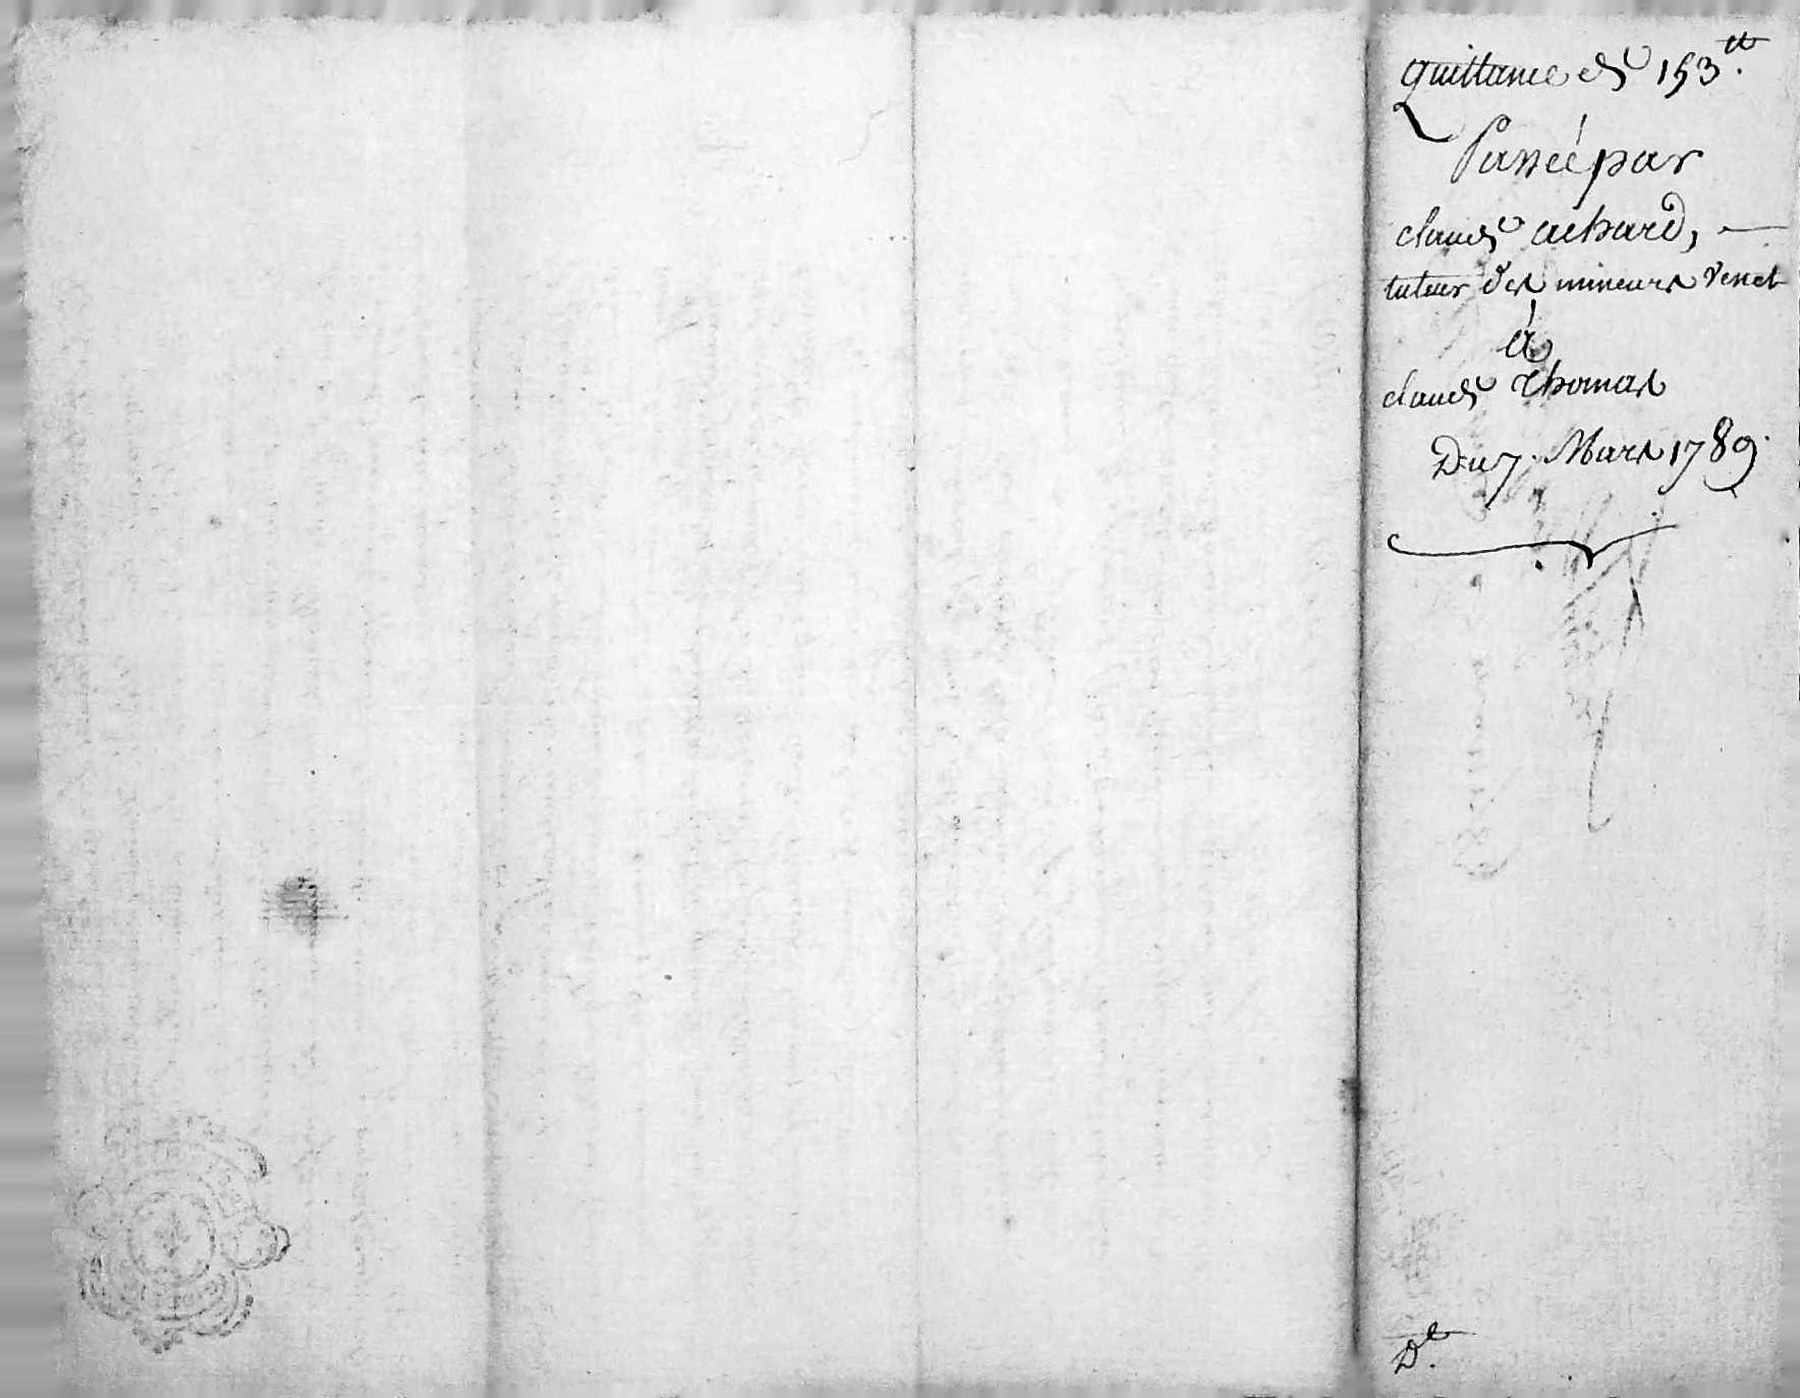 Quittance de 153 ₶.
Passée par
claude achard,
tuteur des mineurs Venet
à
claude Thomas
Du 7. Mars 1789.
De.